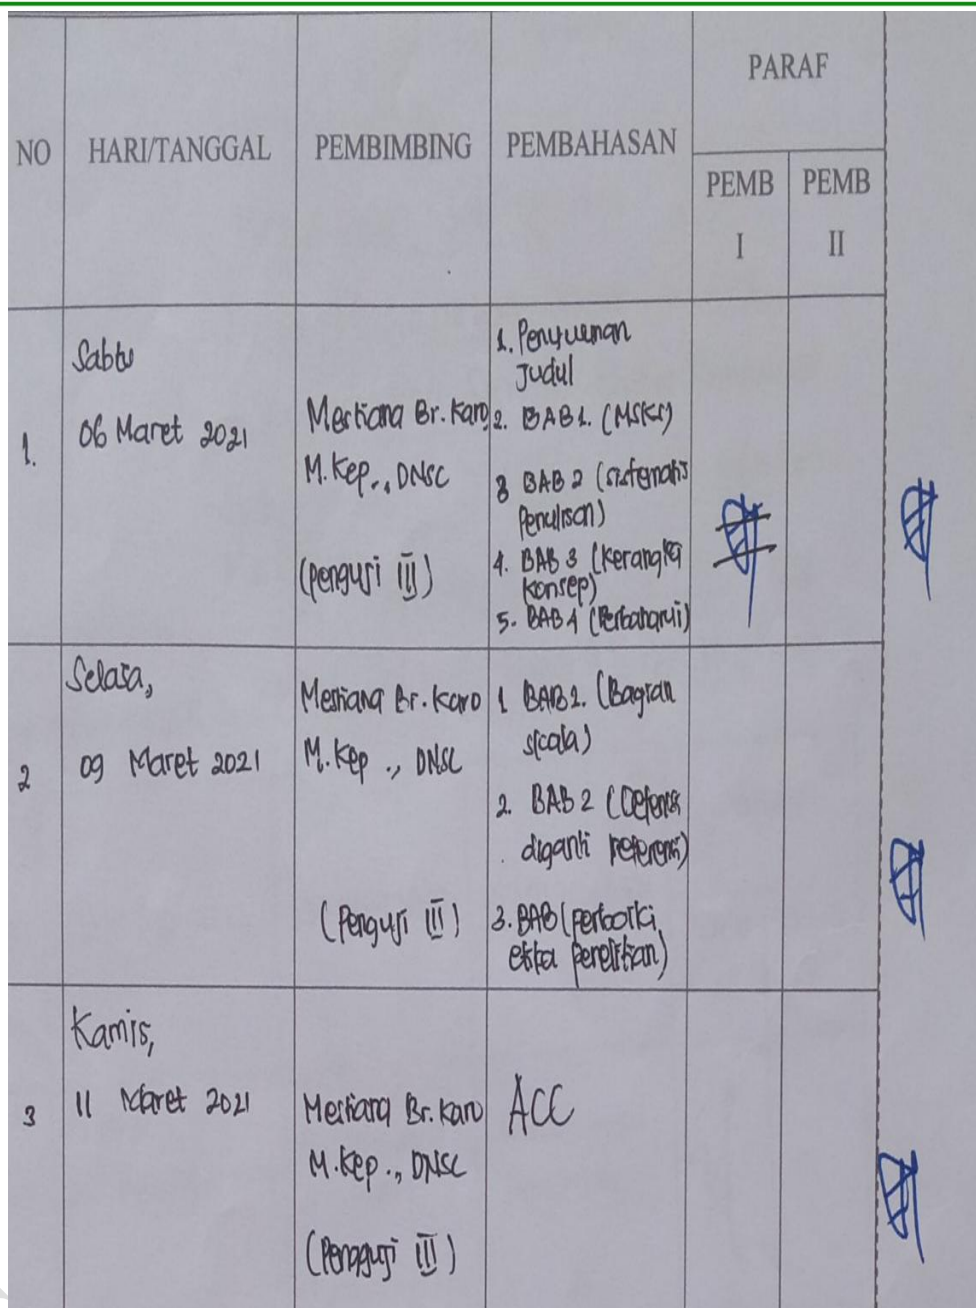 NO HARI/TANGGAL PEMBIMBING PEMBAHASAN PARAF
PEMB I PEMB II
1.
Sabtu
06 Maret 2021
Mestiana Br. Karo
M.Kep., DNSC
(penguji III)
1. Penyusunan
Judul
2. BAB 1. (MSKS)
3 BAB 2 (sistematis
Penulisan)
4. BAB 3 (Kerangka
Konsep)
5. BAB 4 (Perbaharui)
2
Selasa,
09 Maret 2021
Mestiana Br. Karo
M.Kep ., DNSC
(Penguji III)
1 BAB 2. (Bagian
skala)
2. BAB 2 (
diganti referensi)
3. BAB (perbaiki
etika penelitian)
3
Kamis,
11 Maret 2021
Mestiana Br. Karo
M.Kep ., DNSC
(Penguji III)
ACC